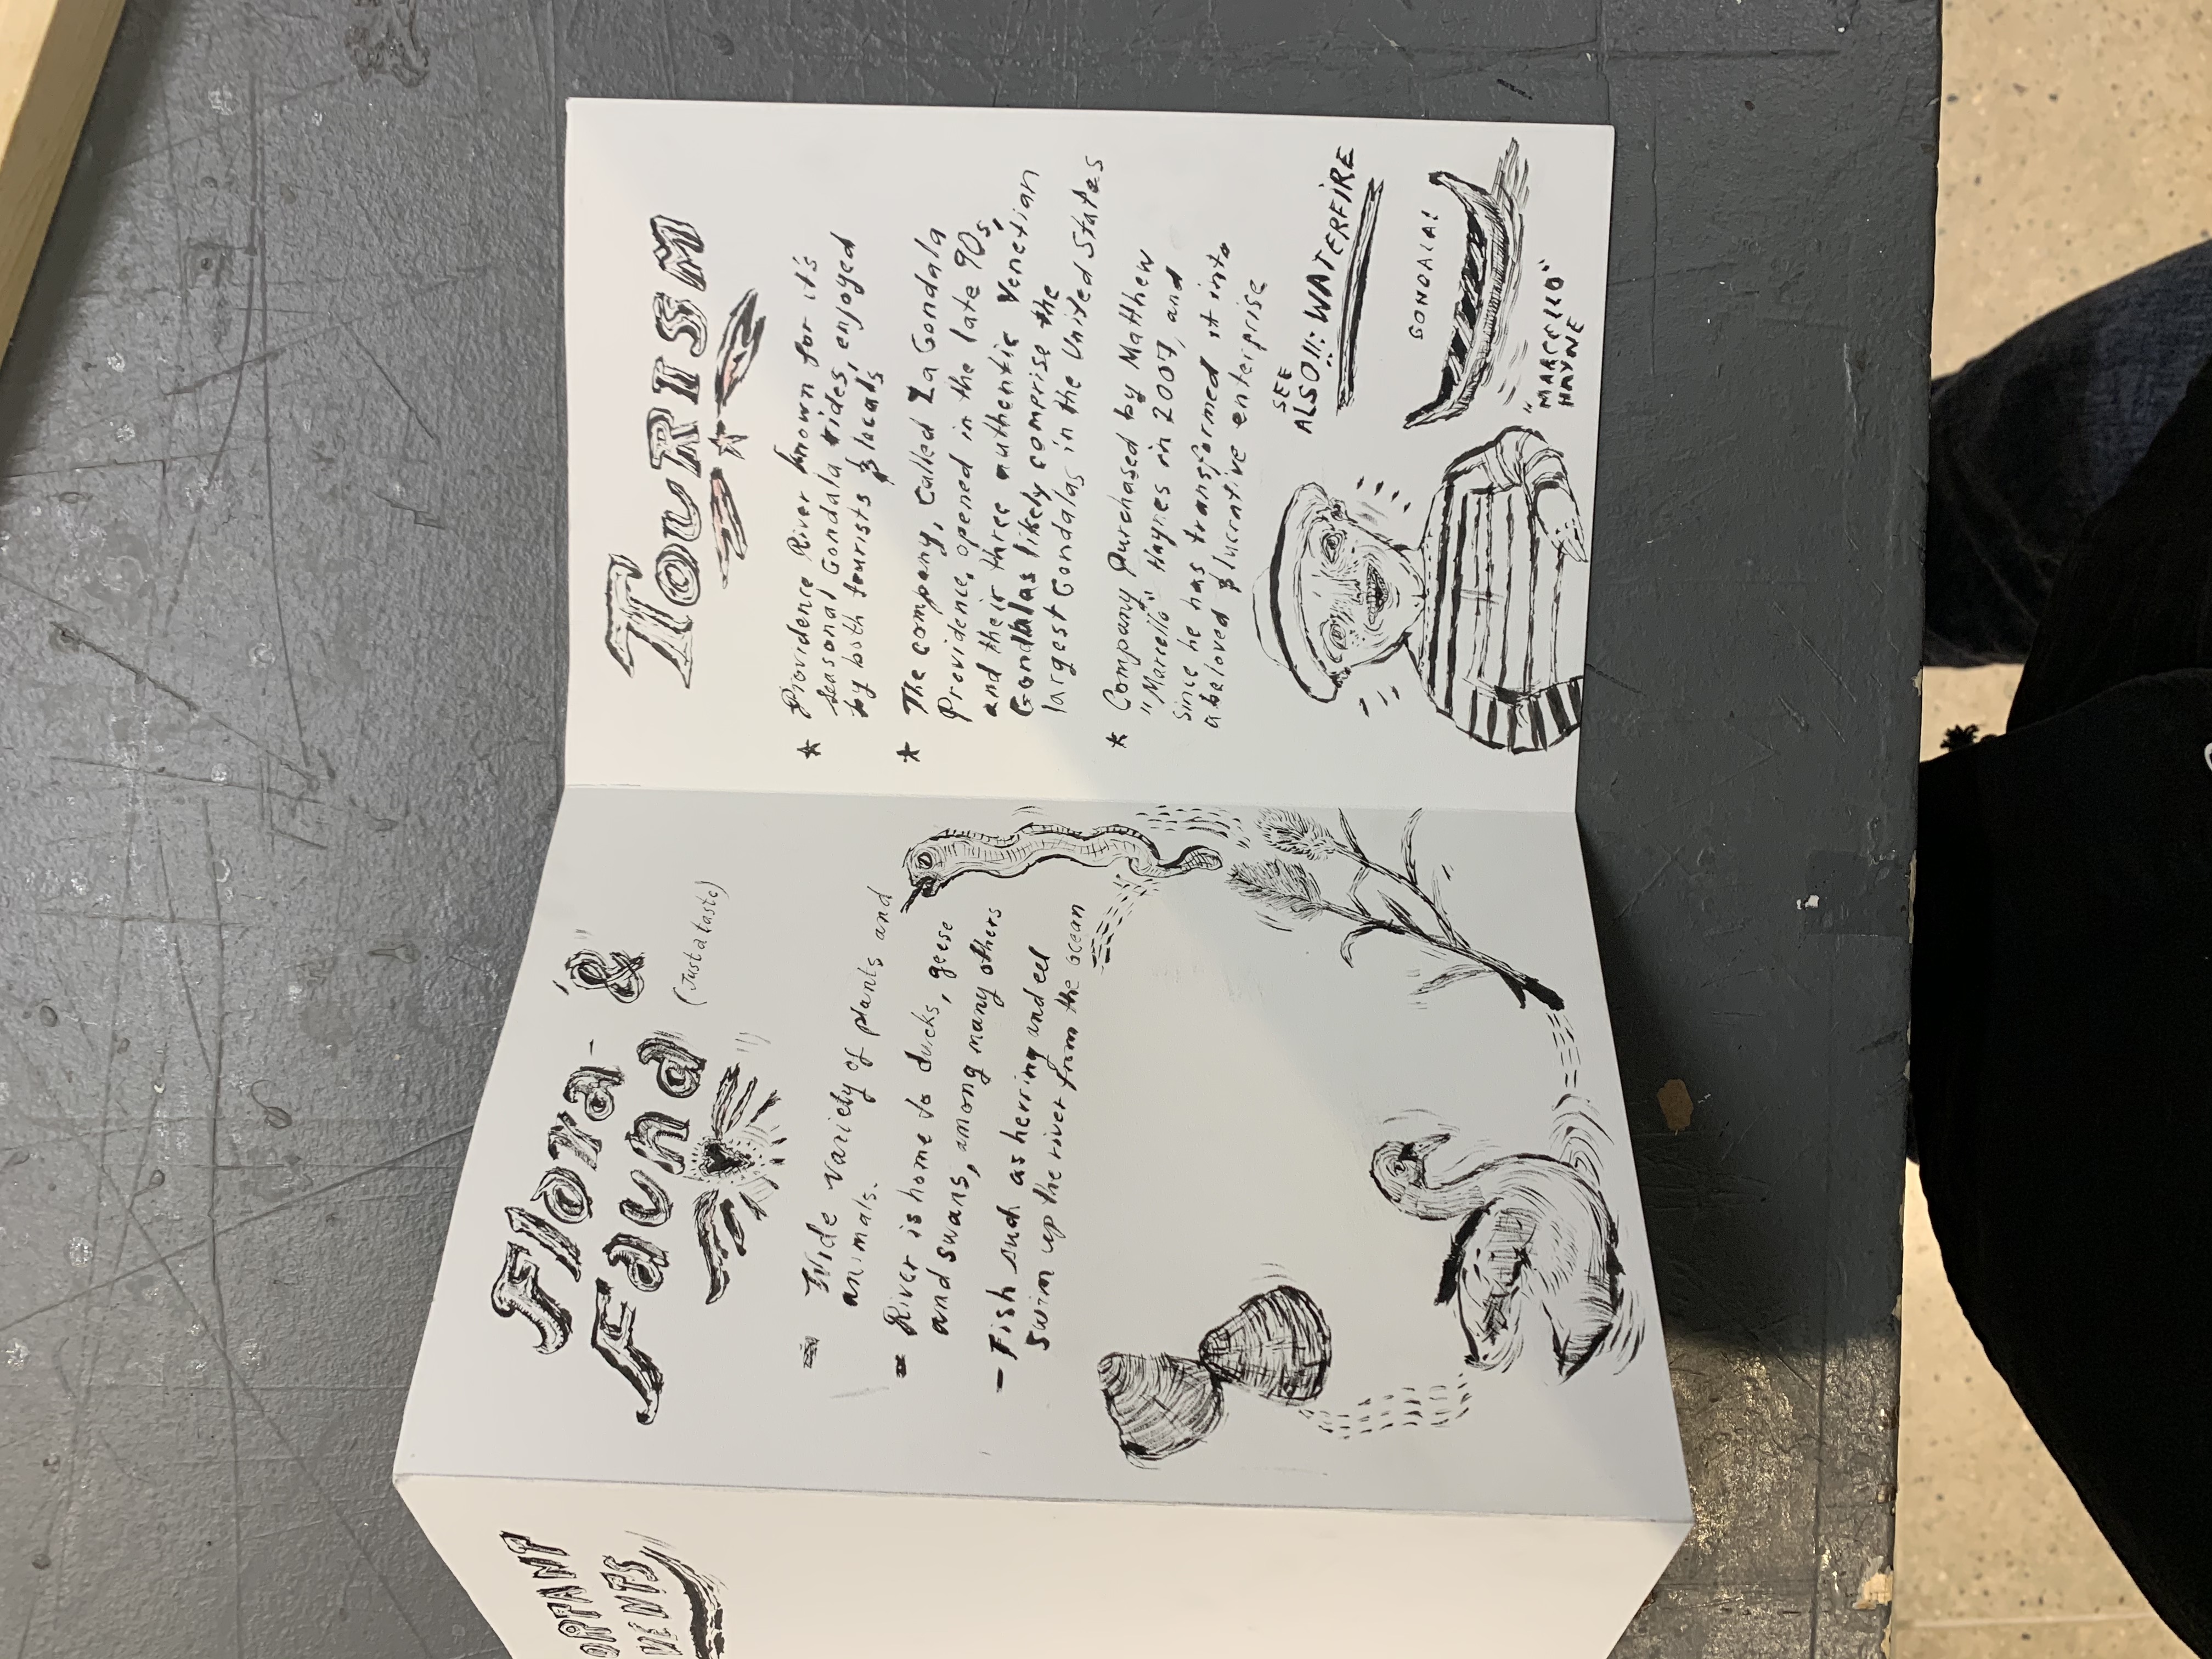 Flora &
Fauna
(Just a taste)
Wide variety of plants and
animals.
River is home to ducks, geese
and swans, among many others
- Fish such as herring and eel
swim up the river from the ocean
TOURISM
* Providence River known for it's
seasonal Gondala rides, enjoyed
by both tourists & locals
* The company, called La Gondala
Providence, opened in the late 90s,
and their three authentic Venetian
Gondalas likely comprise the
largest Gondalas in the United States
* Company purchased by Matthew
"Marcello" Haynes in 2007, and
since he has transformed it into
a beloved & lucrative enterprise
SEE
ALSO!!: WATERFIRE
GONDALA!
"MARCELLO"
HAYNE